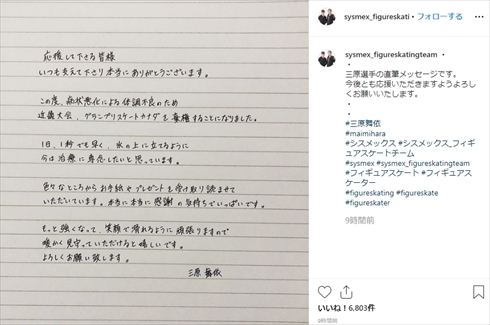 応援して下さる皆様
いつも支えて下さり本当にありがとうございます。
この度、病状悪化による体調不良のため
近畿大会、グランプリスケートカナダを棄権することになりました。
1日、1秒でも早く、氷の上に立てるように
今は治療に専念したいと思っています。
色々なところからお手紙やプレゼントも受け取り読ませて
いただいています。本当に本当に感謝の気持ちでいっぱいです。
もっと強くなって、笑顔で滑れるように頑張りますので
暖かく見守っていただけると嬉しいです。
よろしくお願い致します。
三原舞依
sysmex_figureskati • フォローする
sysmex_figureskatingteam •
•
三原選手の直筆メッセージです。
今後とも応援いただきますようよろしくお願いいたします。
•
•
#三原舞依
#maimihara
#シスメックス #シスメックス_フィギュアスケートチーム
#sysmex #sysmex_figureskatingteam
#フィギュアスケート #フィギュアスケーター
#figureskating #figureskate
#figureskater
9時間前
いいね！6,803件
9時間前